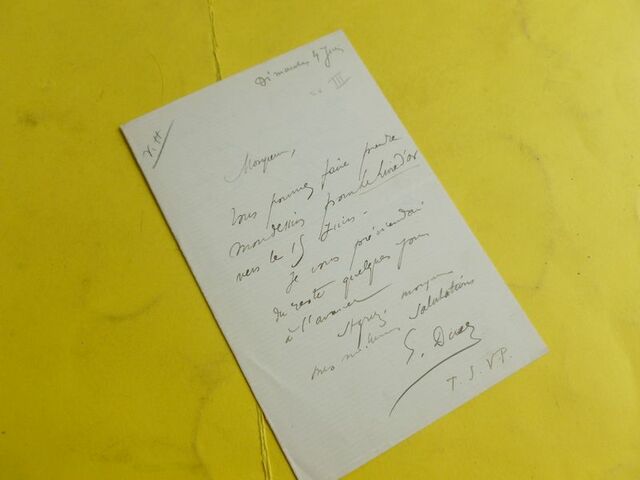 Dimanche 4 Juin
III
Monsieur,
Vous pouvez faire prendre
mon dessin pour le Livre d'or
vers le 15 Juin.
Je vous préviendrai
du reste quelques jours
à l'avance
Agréez, monsieur
mes meilleures salutations
T. S. V. P.